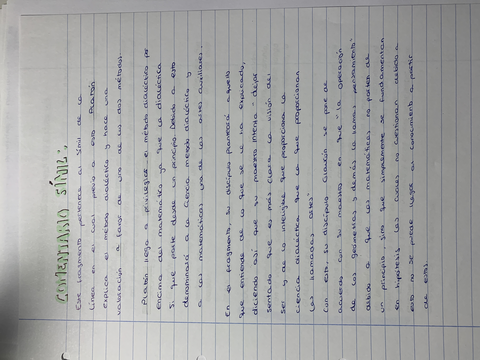 COMENTARIO SÍMIL:
Este fragmento pertenece al Símil de la
Línea en el cual previo a esto Platón
explica el método dialéctico y hace una
valoración a favor de uno de los dos métodos.
Platón llega a privilegiar el método dialéctico por
encima de matemáticas ya que la dialéctica
sí que parte desde un principio. Debido a esto
denominará a la ciencia método dialéctico y
a las matemáticas una de las artes auxiliares.
En el fragmento, su discípulo planteará aquello
que entiende de lo que se le ha explicado,
diciendo así que su maestro intenta "dejar
sentado que es más clara la visión del
ser y de lo inteligible que proporciona la
ciencia dialéctica que la que proporcionan
las llamadas artes"
Con esto su discípulo Glaucón se pone de
acuerdo con su maestro en que "la operación
de los geómetras y demás la llamas pensamiento"
debido a que las matemáticas no parten de
un principio sino que simplemente se fundamentan
en hipótesis las cuales no cuestionan debido a
esto no se puede llegar al conocimiento a partir
de estas.